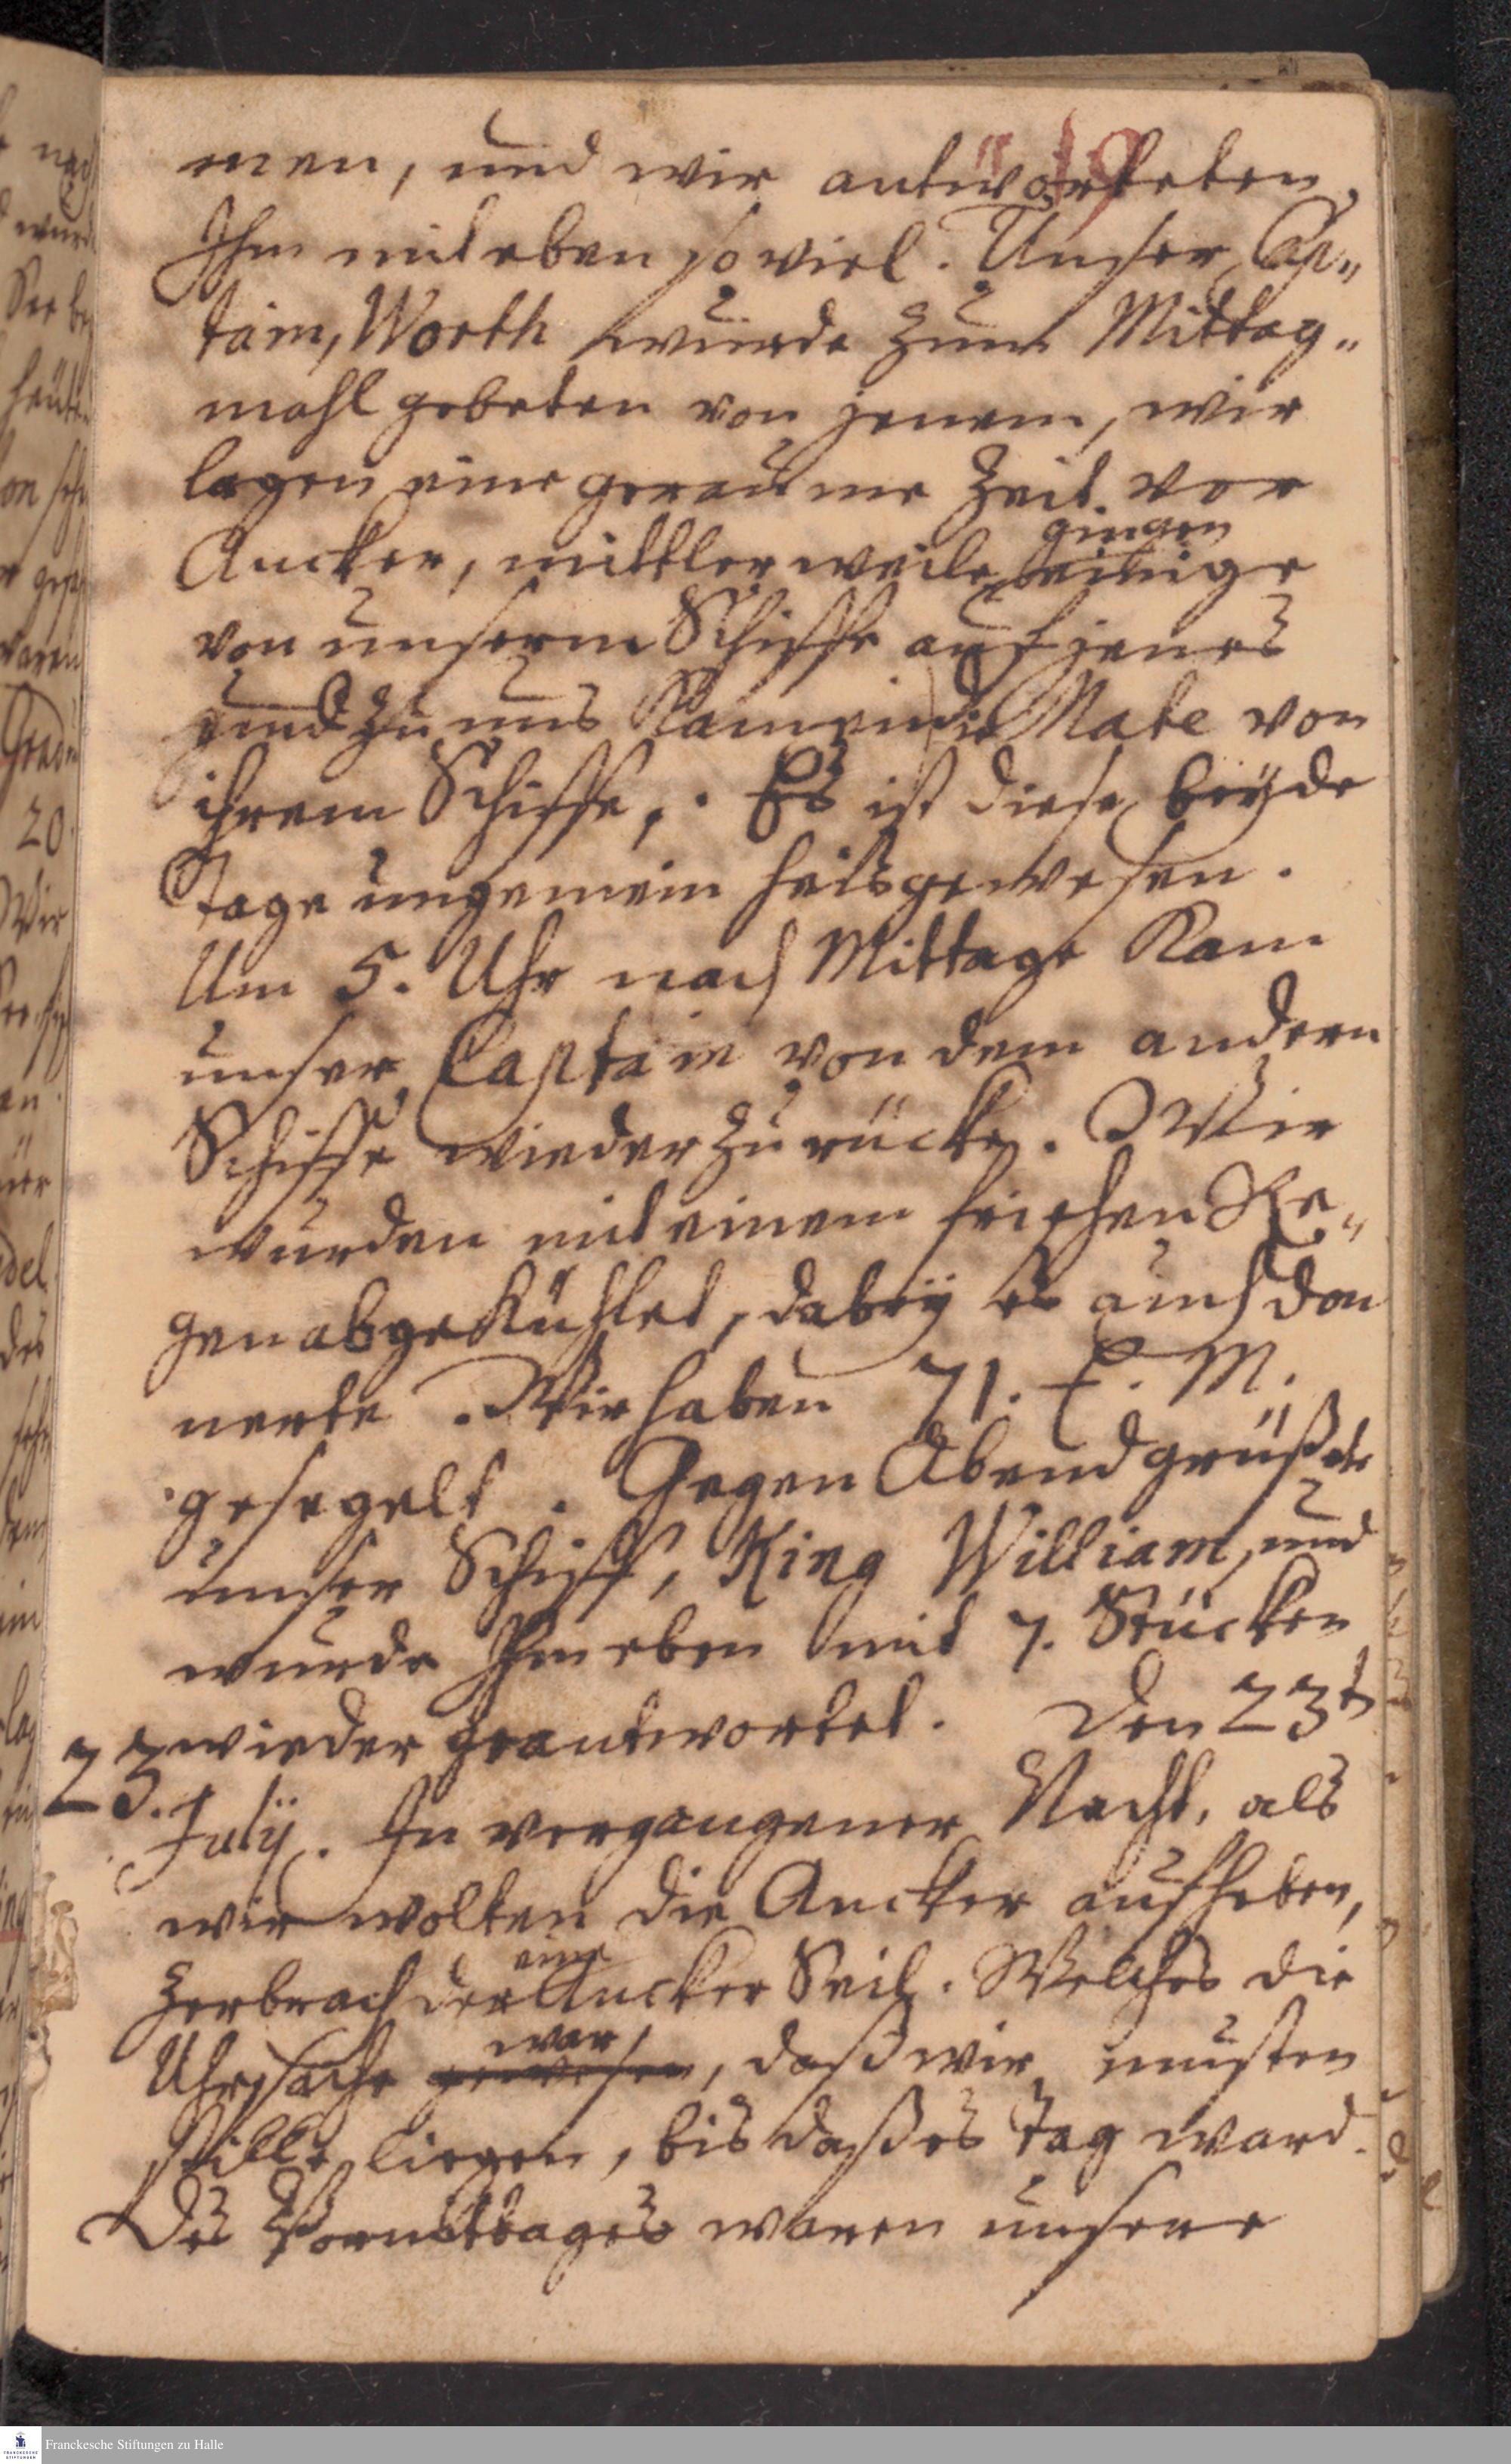 19
men, und wir antworteten
Ihm mit eben so viel. Unser Cap„
tain, Worth wurde zum Mittag„
mahl gebeten von jenem, wir
lagen eine geraume Zeit vor
Ancker, mittlerweile gingen einige
von unserm Schiffe auf jenes
und zu uns Kam Mate von
ihrem Schiffe. Es ist diese beyde
Tage ungemein heis gewesen.
Um 5. Uhr nach Mittage Kam
unser Captain von dem andern
Schiffe wieder zurücke. Wir
wurden mit einem frischen Re„
gen abgekühlet, dabeÿ es auch don
nerte. Wir haben 71. E. M.
gesegelt. Gegen Abend grüßete
unser Schiff, King William, und
wurde Ihm eben mit 7. Stücken
wieder geantwortet. Den 23t
23.
Julÿ. In vergangener Nacht, als
wir wolten die Ancker aufheben,
zerbrach der eine Ancker Seil. Welches die
Uhrsache gewesen war, daß wir musten
stille liegen, bis daß es Tag ward.
Des Vormittages waren unsere
Franckesche Stiftungen zu Halle